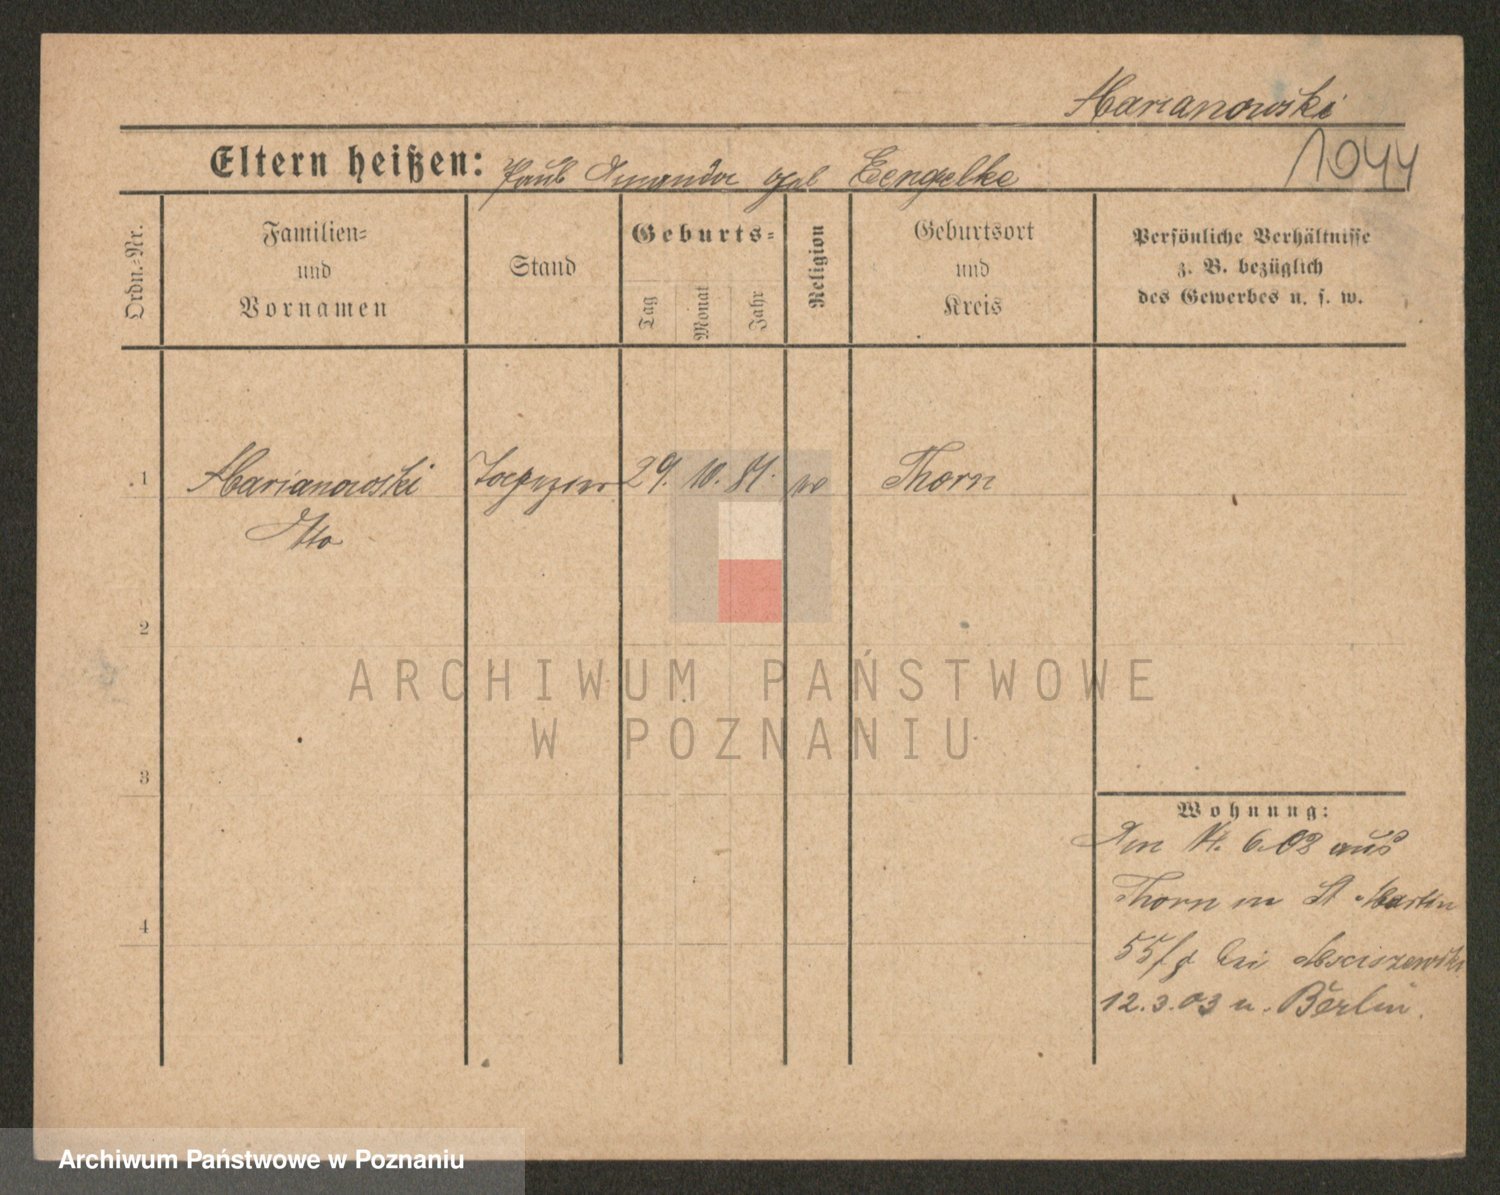 Marianowski
1044
Eltern heißen: Paul Amanda geb Lengelke
Ordn.-Nr.
Familien-
und
Vornamen
Stand
Geburts-
Tag
Monat
Jahr
Religion
Geburtsort
und
Kreis
Persönliche Verhältnisse
z. B. bezüglich
des Gewerbes u. s. w.
1 Marianowski 29. 10. 81. Thorn
Otto
2
3
4
Wohnung:
Am 14. 6. 02 aus
Thorn St Martin
55 bei Msciszewski
12.3.03 n. Berlin.
ARCHIWUM PAŃSTWOWE
W POZNANIU
Archiwum Państwowe w Poznaniu